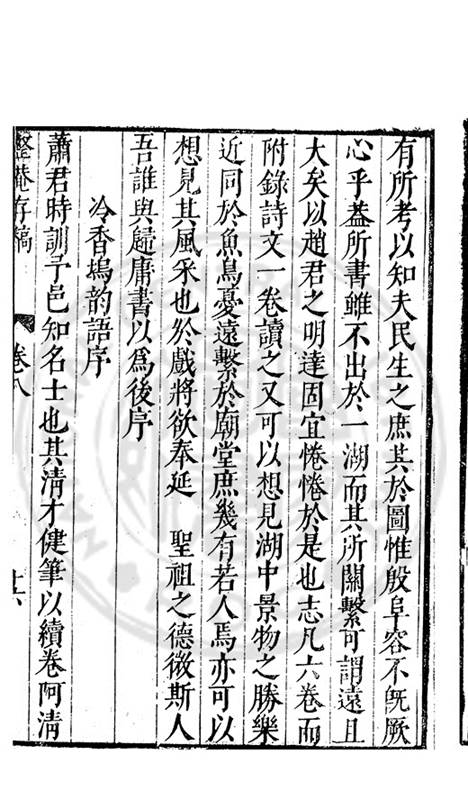 有所考以知夫民生之庶其於圖惟殷阜容不既厥
心乎蓋所書雖不出於一湖而其所關繫可謂遠且
大矣以趙君之明達固宜惓惓於是也志凡六卷而
附錄詩文一卷讀之又可以想見湖中景物之勝樂
近同於魚鳥憂遠繫於廟堂庶幾有若人焉亦可以
想見其風采也於戲將欲奉延　聖祖之德微斯人
吾誰與歸庸書以爲後序
冷香塢韵語序
蕭君時訓子邑知名士也其清才健筆以續卷阿清
整菴存稿
卷八
十六